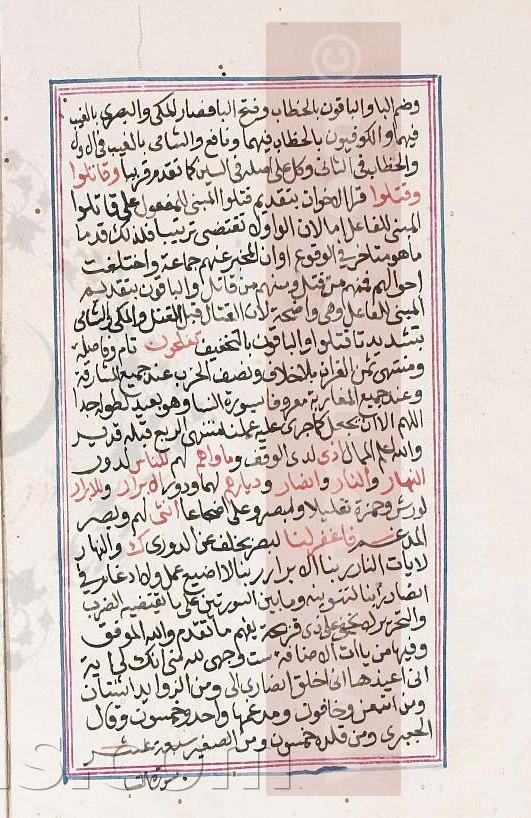 وضم البا والباقون بالخطاب وفتح البا فصار المكى والبصرى بالغيب
فيهما والكوفيون بالخطاب فيهما ونافع والشامى بالغيب فى الاول
والخطاب فى الثانى وكل على اصله فى السين كما تقدم قريبا وقاتلوا
وقتلوا قرا الاخوان بتقديم قتلوا المبنى للمفعول على قاتلوا
المبنى للفاعل اما لان الواو لا تقتضى ترتيبا فلذلك قدم ما
ما هو متاخر فى الوقوع او ان المخبر عنهم جماعة واختلفت
احوالهم فمنهم من قتل ومنهم من قاتل والباقون بتقديم
المبنى للفاعل وهى واضحة لان القتال قبل القتل والمكى والشامى
بتشديد تا قتلوا والباقون بالتخفيف تفلحون تام وفاصلة
ومنتهى ثمن القران بلا خلاف ونصف الحزب عند جميع المشارقة
وعند جميع المغاربة معروفا بسورة النسا وهو بعيد لطوله جدا
اللهم الا ان يجعل كما جرى عليه عملنا منتهى الربع قبله قدير
والله اعلم الممال اذى لدى الوقف وماواهم لهم للناس لدورى
النهار والنار وانصار وديارهم لهما ودورى الابرار وللابرار
لورش وحمزة تقليلا ولبصر وعلى اضجاعا انثى لهم وبصر
المدغم فاغفر لنا لبصر بخلف عن الدورى ك والنهار
لايات النار ربنا الابرار ربنا لا اضيع عمل ولا ادغام فى
انصار ربنا لتنوينه وما بين السورتين على ما يقتضيه الضرب
والتحرير لا يخفى على ذى قريحة يفهم ما تقدم والله الموفق
وفيها من ياات الاضافة ست وجهى لله منى انك لى اية
انى اعيذها انى اخلق انصارى الى ومن الزوايد اثنتان
ومن اتبعن وخافون ومدغمها واحد وخمسون وقال
الجعبرى ومن قلده خمسون ومن الصغير سبعة عشر
سورة النسا